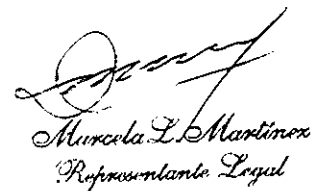 Marcela L. Martínez
Representante Legal